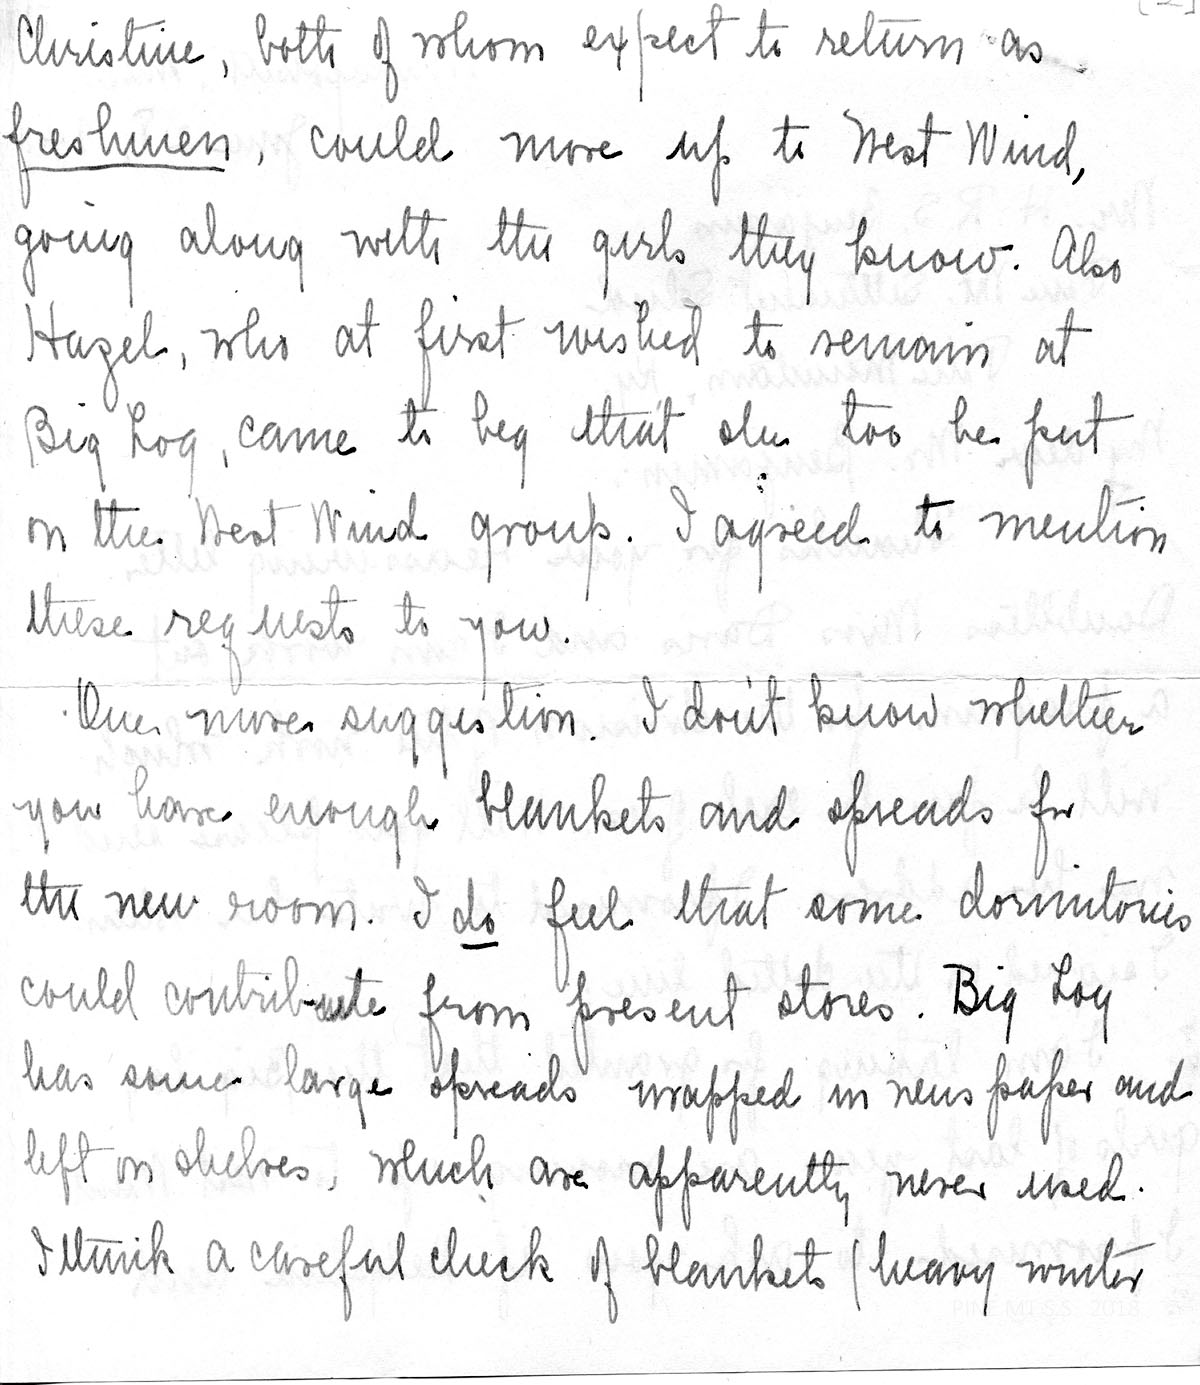 Christine, both of whom expect to return as
freshmen, could move up to West Wind,
going along with the girls they know. Also
Hazel, who at first wished to remain at
Big Log, came to beg that she too be put
on the West Wind group. I agreed to mention
these requests to you.
One more suggestion. I don't know whether
you have enough blankets and spreads for
the new room. I do feel that some dormitories
could contribute from present stores. Big Log
has some large spreads wrapped in newspaper and
left on shelves, which are apparently never used.
I think a careful check of blankets (heavy winter
PINE MT S.S. 2018